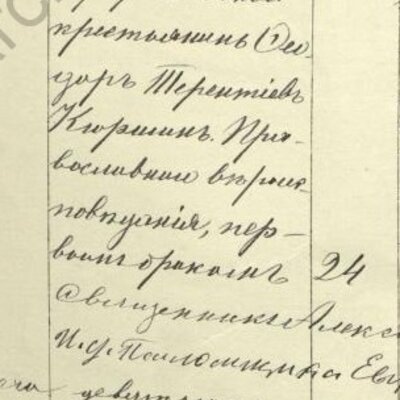 крестьянинъ Ѳео-
доръ Терентіевъ
Кюршинъ. Пра-
вославнаго вѣроис-
повѣданія, пер-
вымъ бракомъ 24
Священникъ Алекс
И. д. Псаломщика Евг